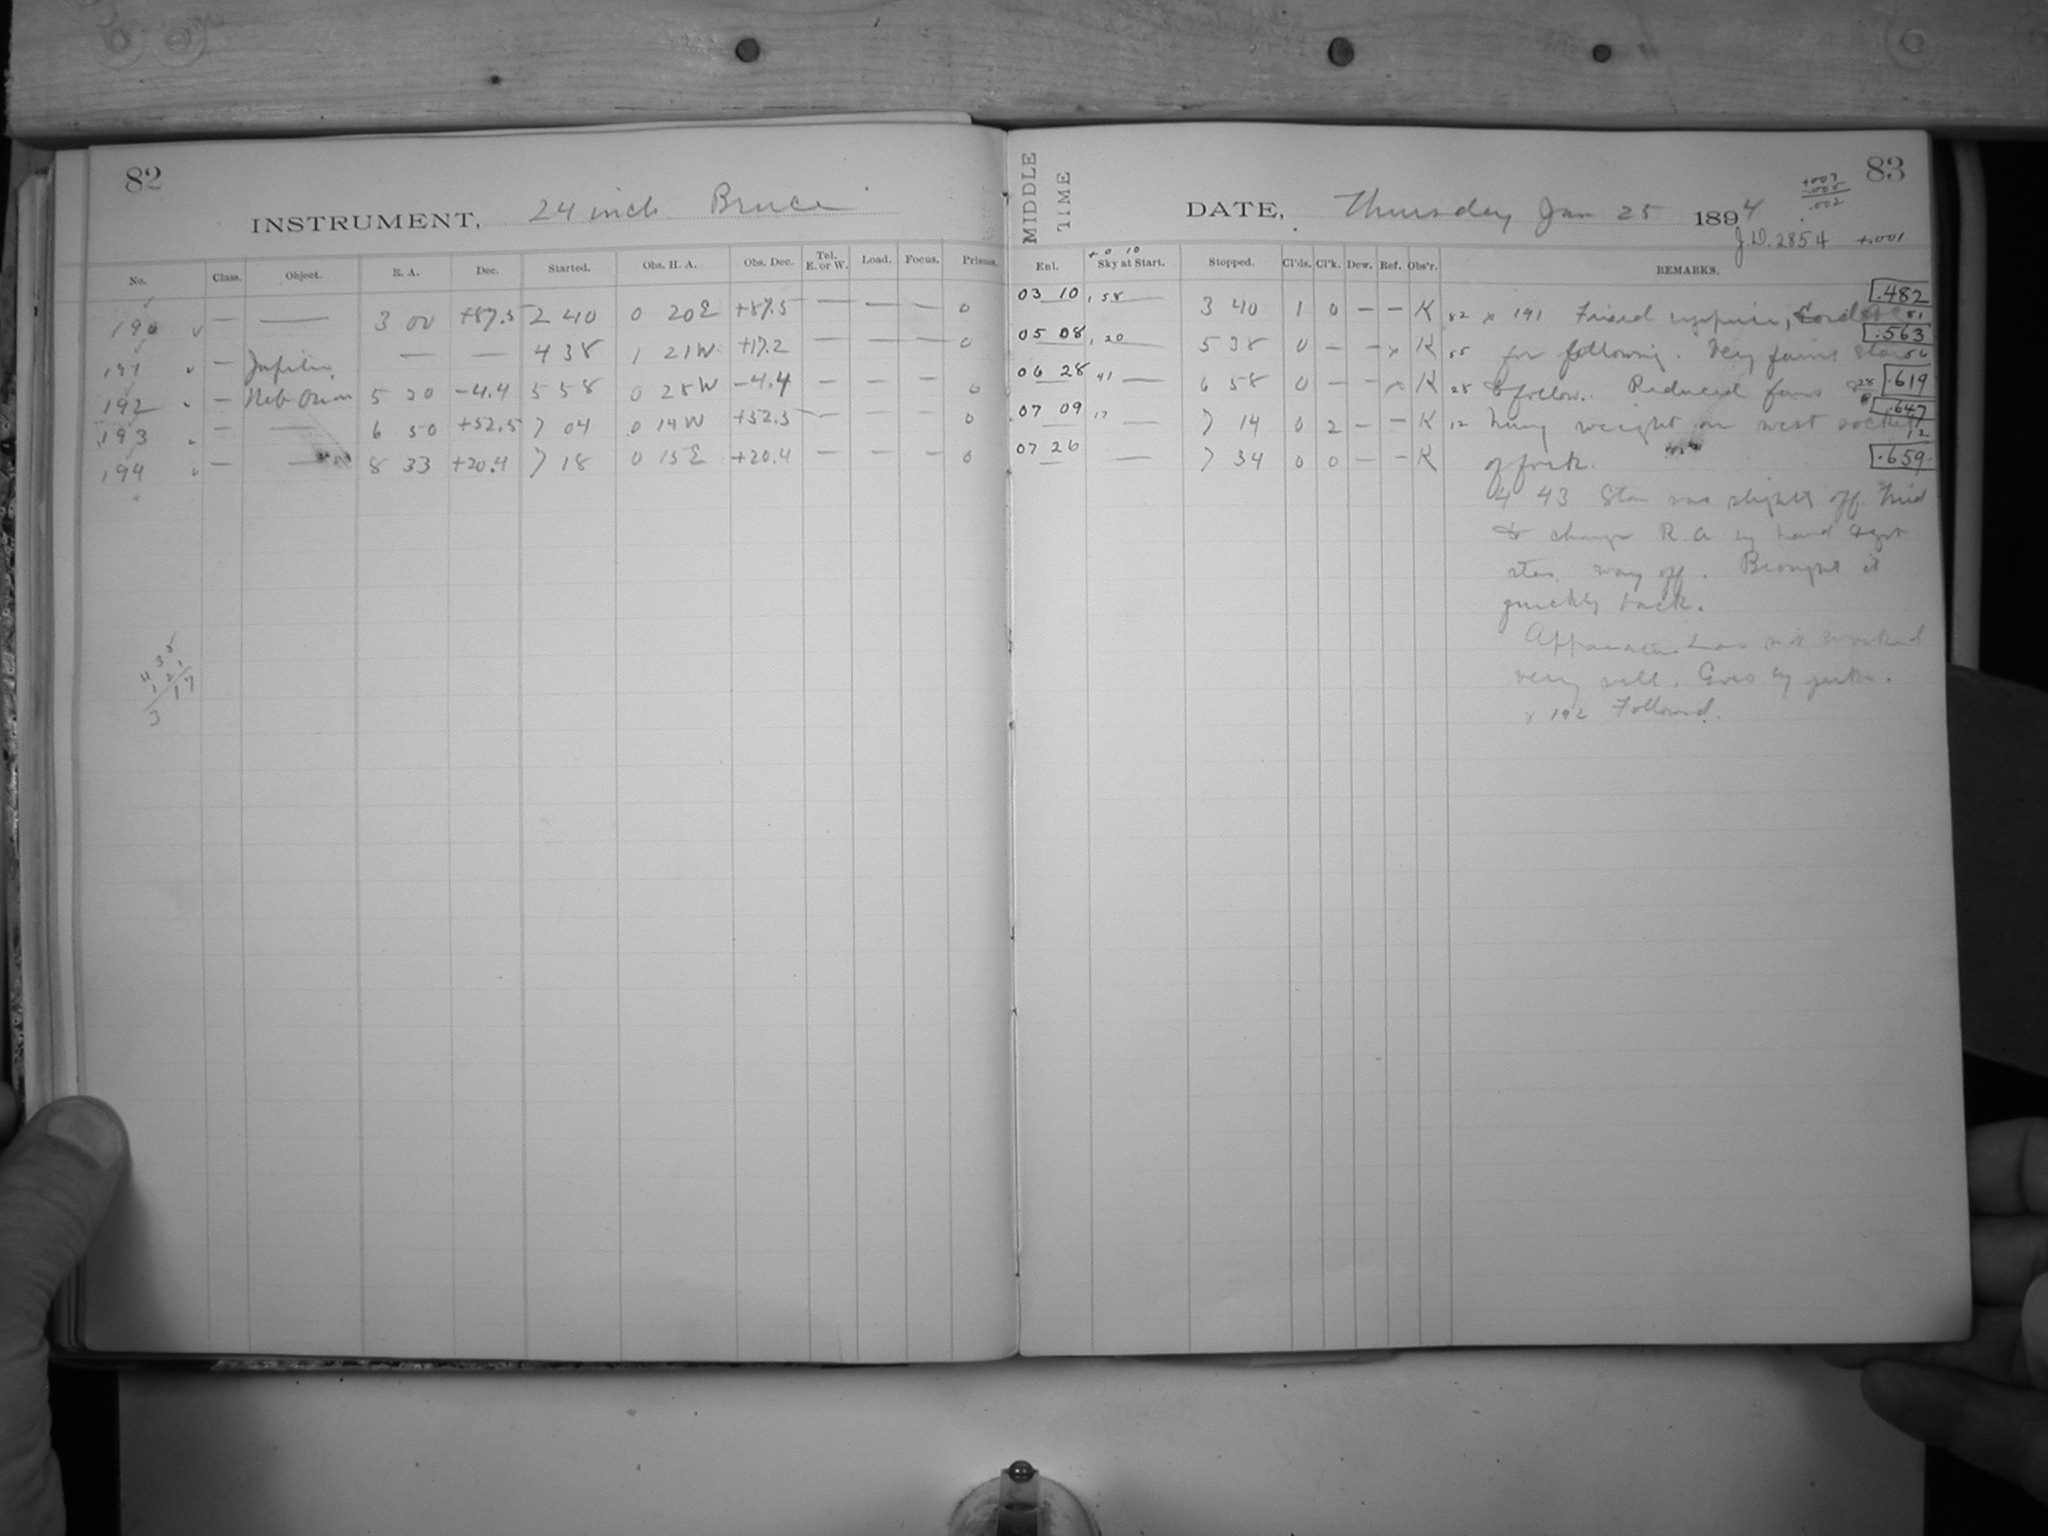 82
INSTRUMENT, 24 inch Bruce
No. Class. Object. R. A. Dec. Started. Obs. H. A. Obs. Dec. Tel. E. or W. Load. Focus. Prisms.
190 — — 3 00 +87.5 2 40 0 20 E +87.5 — — — 0
191 — Jupiter — — 4 38 1 21 W +17.2 — — — 0
192 — Neb Orion 5 30 -4.4 5 58 0 28 W -4.4 — — — 0
193 — — 6 50 +52.5 7 04 0 14 W +52.5 — — — 0
194 — — 8 33 +20.4 7 18 0 15 E +20.4 — — — 0
3 17
MIDDLE TIME
DATE, Thursday Jan 25 1894
83
+.007
.005
.002
J.D. 2854 +.001
Enl. Sky at Start. Stopped. Cl'ds. Cl'k. Dew. Ref. Obs'r. REMARKS.
03 10 , 58 — 3 40 1 0 — — K 82 x 191 .482
05 08 , 20 — 5 38 0 — — x K 55 for following. Very faint star .563
06 28 41 — 6 58 0 — — x K 28 to follow. Reduced .619
07 09 17 — 7 14 0 2 — — K 12 weight on west socket .647
07 26 — 7 34 0 0 — — K of fork. .659
4 43 Star was slightly off. Tried
to change R.A by hand & got
star way off. Brought it
quickly back.
Apparatus has not worked
very well. Goes by jerks.
x 192 Followed.